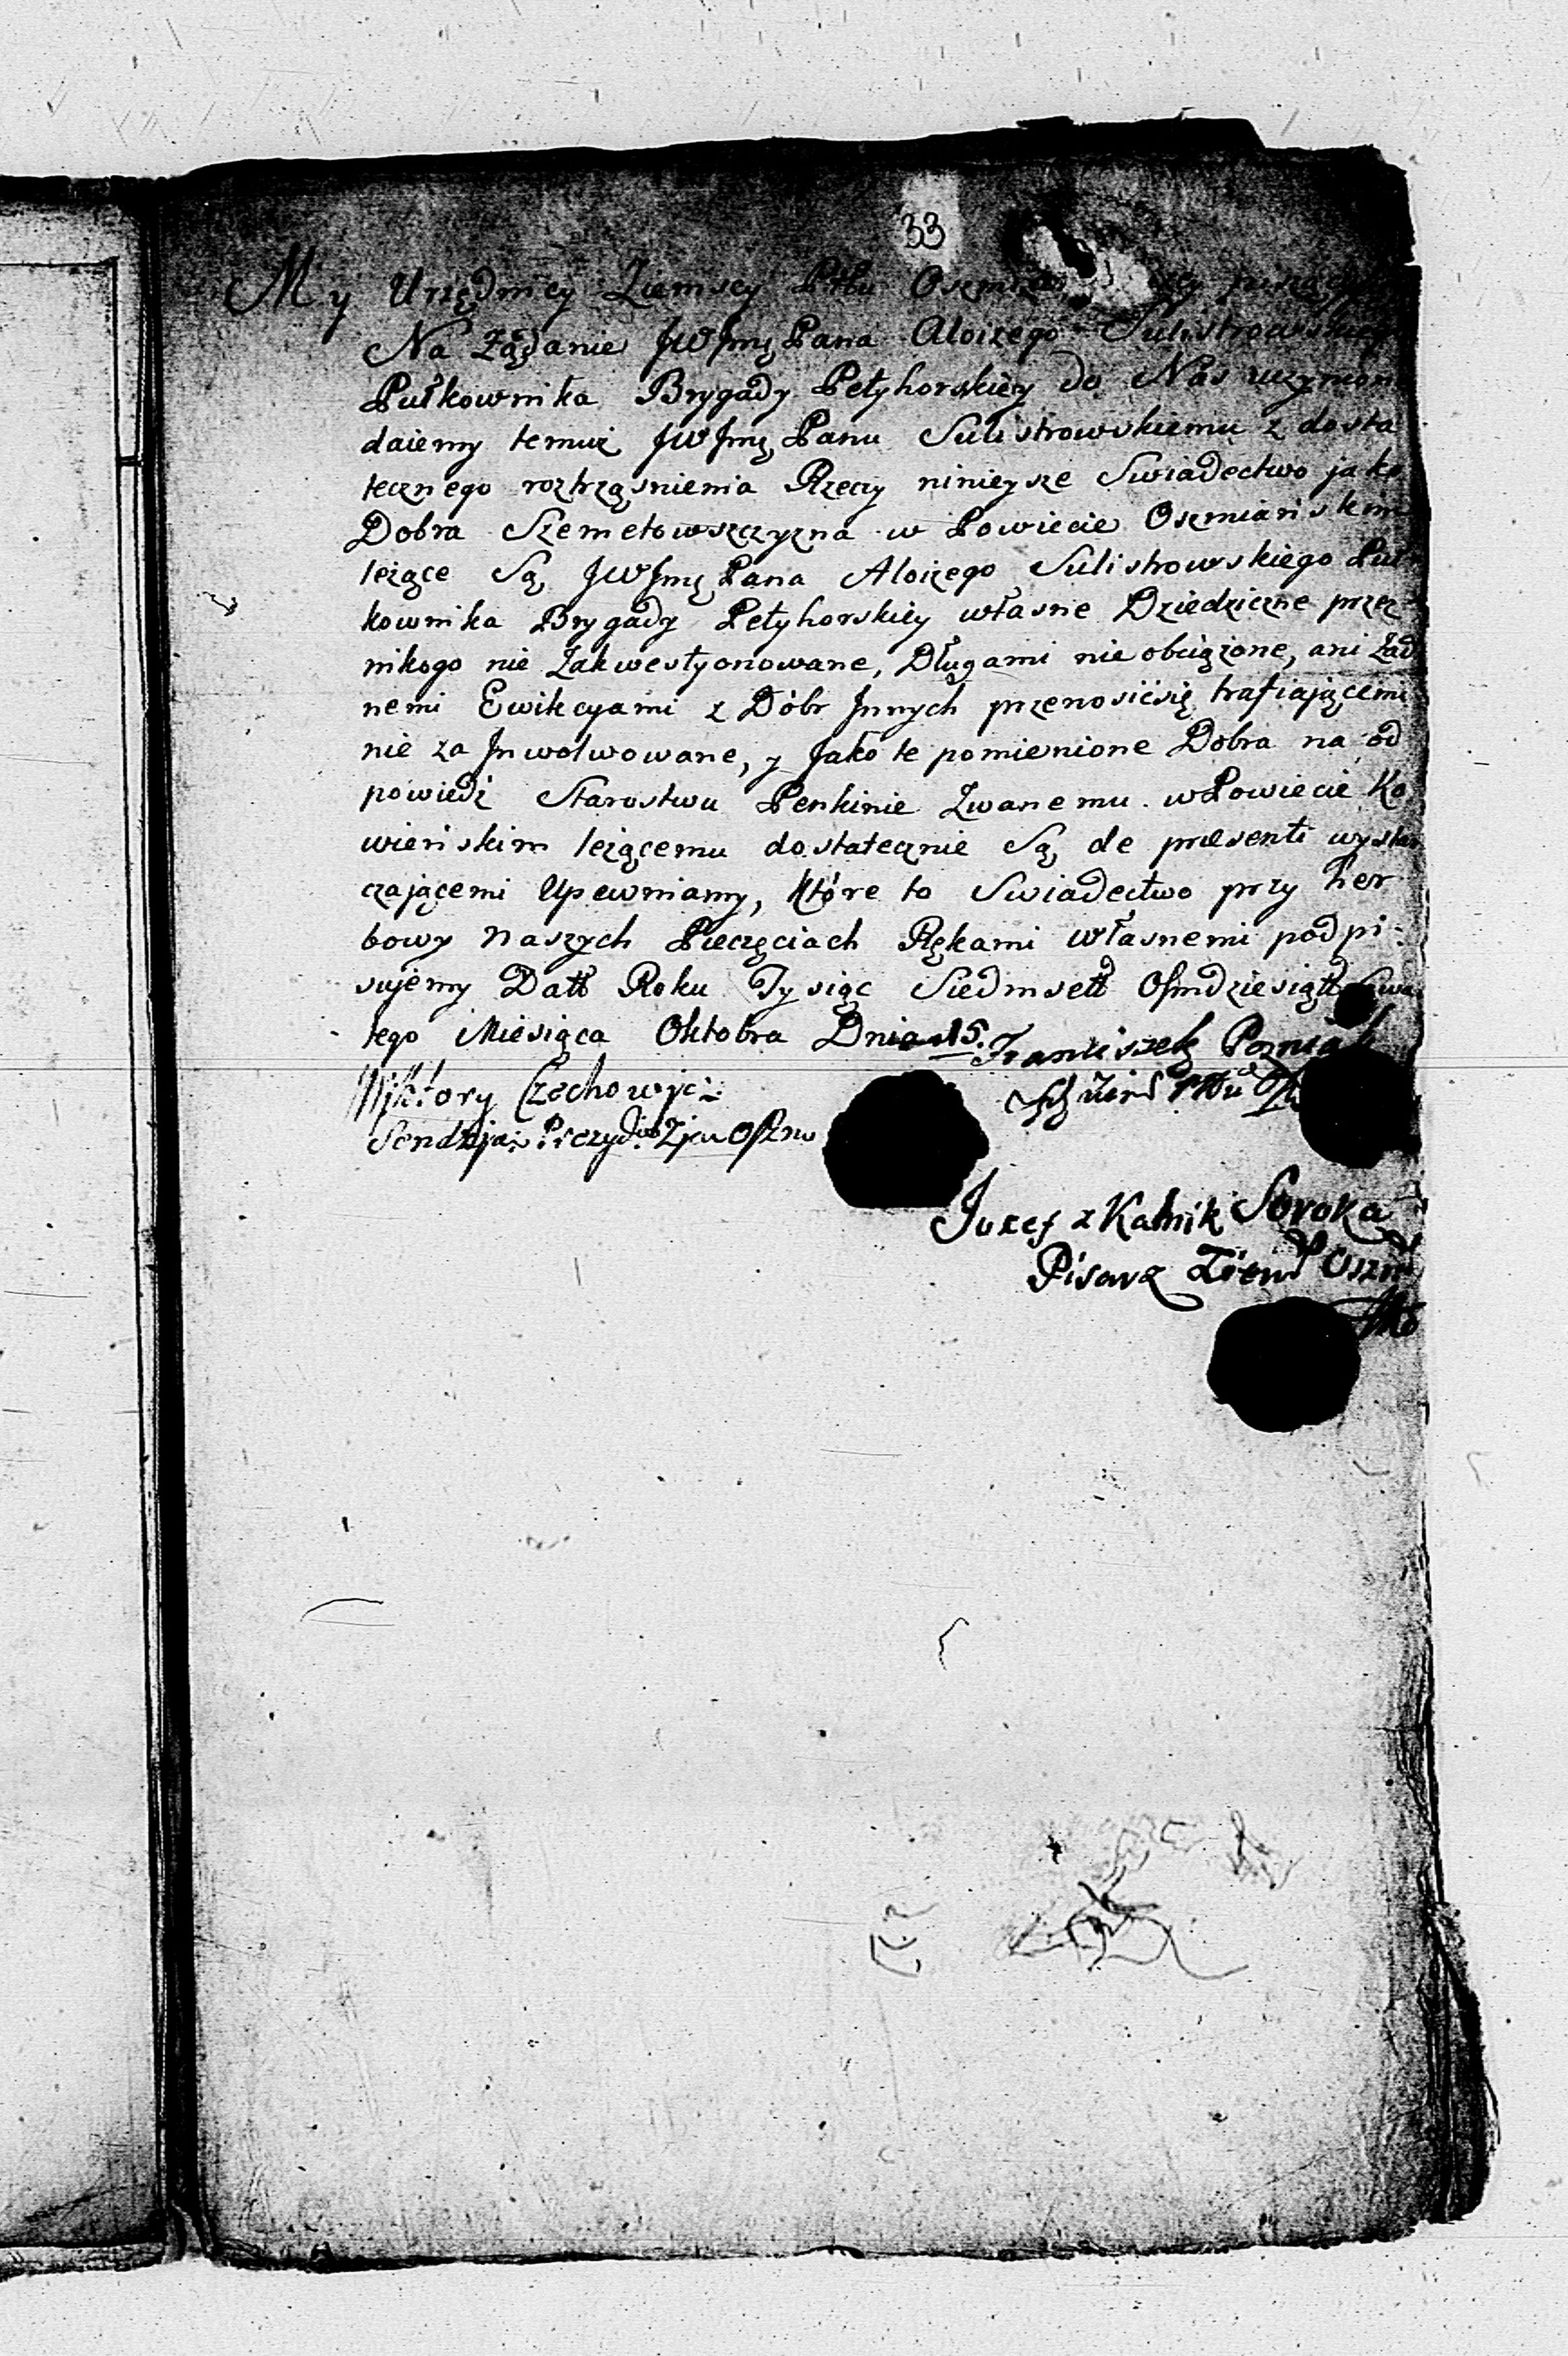 33
My Urzędnicy Ziemscy Pttu
Na Żądanie JWJmę Pana Aloizego Sulistrowskiego
Pułkownika Brygady Petyhorskiey do Nas uczynione
daiemy temuż JWJmę Panu Sulistrowskiemu z dosta
tecznego roztrząsnienia Rzeczy ninieysze Swiadectwo jako
Dobra Szemetowszczyzna w Powiecie Oszmiańskim
leżące Są, JWJmę Pana Aloizego Sulistrowskiego Puł
kownika Brygady Petyhorskiey własne Dziedziczne przez
nikogo nie Zakwestyonowane, Długami nie obciążone, ani Żad
nemi Ewikcyami z Dóbr Innych przenosić się trafiającemi
nie za Inwolwowane, y Jako te pomienione Dobra na od
powiedź Starostwu Penkinie Zwanemu w Powiecie Ko
wieńskim leżącemu dostatecznie Są de præsenti wystar
czającemi Upewniamy, które to Swiadectwo przy her
bowy Naszych Pieczęciach Rękami własnemi podpi:
sujemy Datt Roku Tysiąc Siedmsett Osmdziesiątt
tego Miesiąca Oktobra Dnia 15.
Franciszek
Wiktory Czechowic:
Sendzja
Jozef z Kalnik Soroka
Pisarz Ziem Oszm